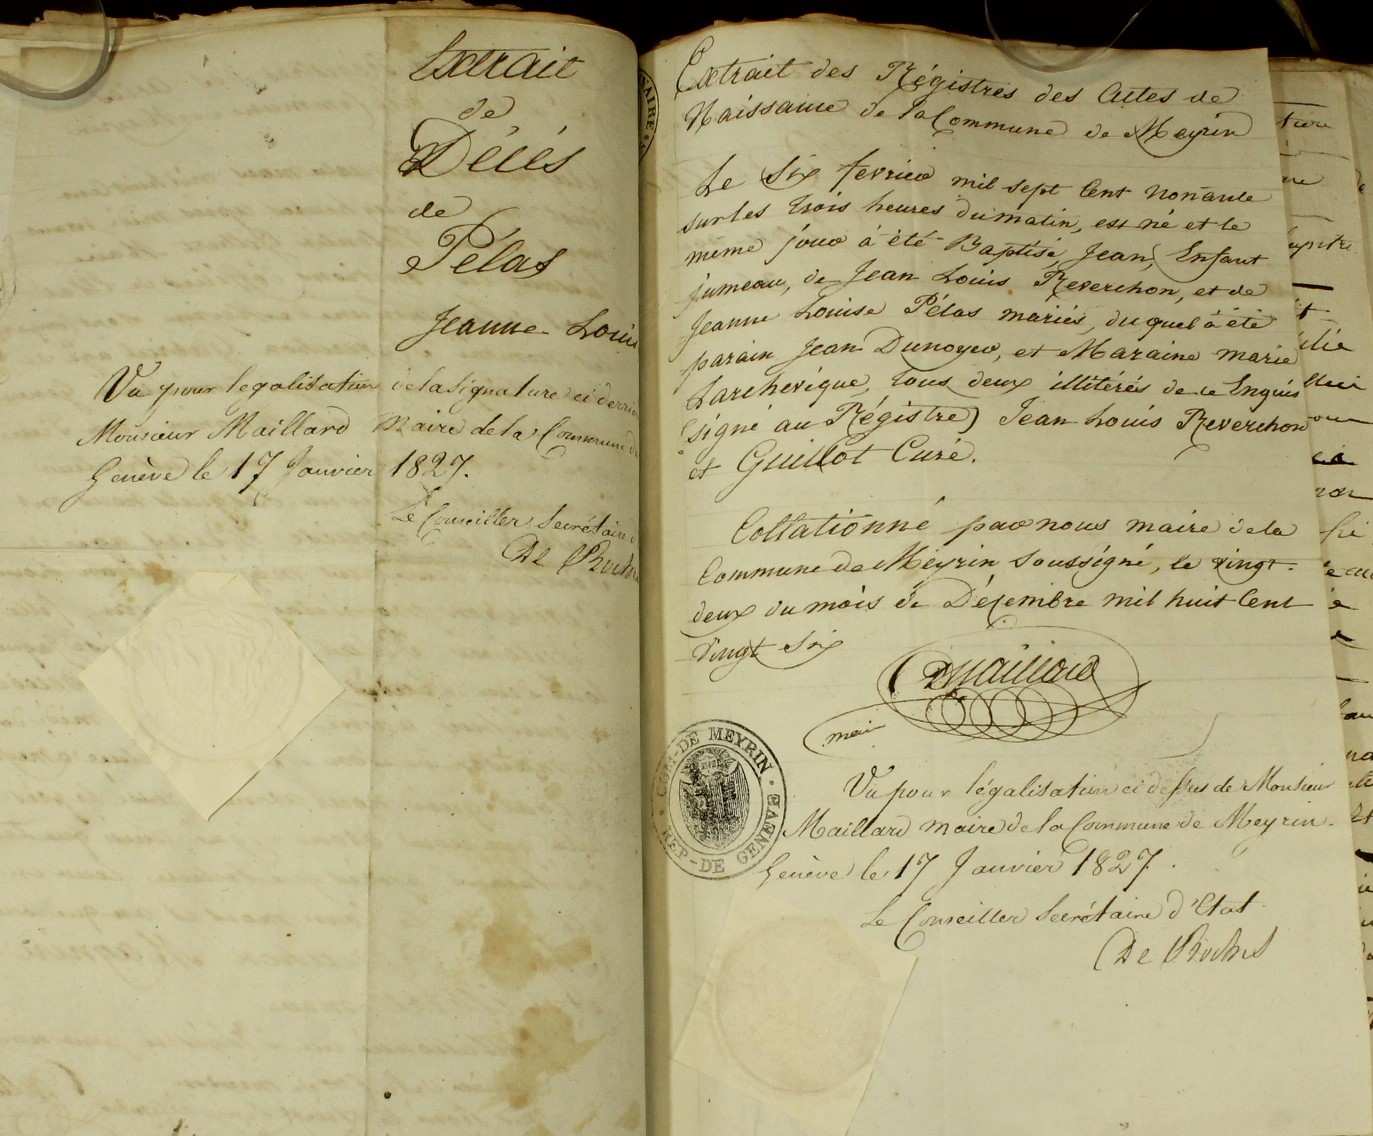 Extrait
de
Décés
de
Pélas
Jeanne-Louis
Vu pour legalisation de la signature ci derrie
Monsieur Maillard Maire de la Commune de
Genève le 17 Janvier 1827.
Le Conseiller Secrétaire d
De Roches
NAIRE
Extrait des Régistres des Actes de
Naissance de la Commune de Meyrin
Le Six fevrier mil sept Cent nonante
sur les trois heures du matin, est né et le
meme jour à été Baptisé, Jean, Enfant
jumeau, de Jean Louis Reverchon, et de
Jeanne Louise Pélas mariés, du quel à été
parain Jean Dunoyer, et Maraine marie
Larchevéque, tous deux illitérés de ce Enquis
(signé au Régistre) Jean Louis Reverchon
et Guillot Curé.
Collationné par nous maire de la
Commune de Meyrin Soussigné, le vingt-
deux du mois de Décembre mil huit Cent
vingt Six
DMaillard
mair
COM-DE MEYRIN
REP-DE GENEVE
Vu pour légalisation ci dessus de Monsieur
Maillard maire de la Commune de Meyrin.
Genève le 17 Janvier 1827.
Le Conseiller Secrétaire d'Etat
De Roches